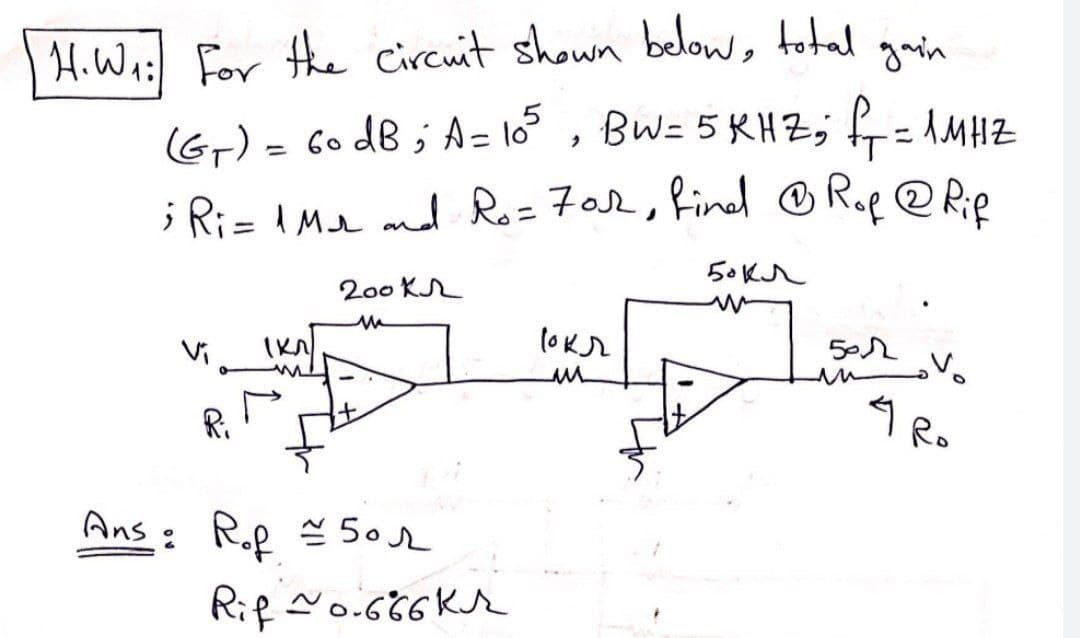 H.W1: For the circuit shown below, total gain
(GT) = 60 dB ; A = 10⁵ , BW = 5 KHZ; fT = 1MHZ
; Ri = 1 MΩ and Ro = 70Ω, find ① Rof ② Rif
200KΩ
50KΩ
Vi 1KΩ
10KΩ
50Ω Vo
-
+
-
+
Ri
Ro
Ans : Rof ≅ 50Ω
Rif ≃ 0.666KΩ